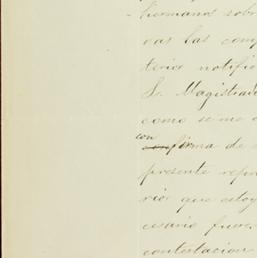 hermanos sobr
ras las comp
terior notific
S. Magistrado
como se me
con
firma de
presente repre
rior que estoy
cesario fuere
contestacion